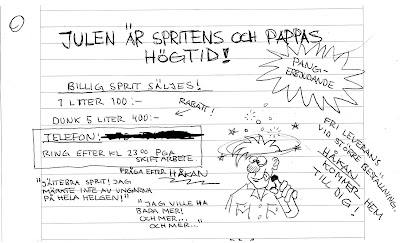 JULEN ÄR SPRITENS OCH PAPPAS
HÖGTID!
BILLIG SPRIT SÄLJES!
1 LITER 100:-
RABATT!
DUNK 5 LITER 400:-
TELEFON:
RING EFTER KL 23.00 PGA
SKIFTARBETE.
FRÅGA EFTER HÅKAN
PANG-
ERBJUDANDE
FRI LEVERANS
VID STÖRRE BESTÄLLNING.
HÅKAN
KOMMER HEM
TILL DIG!
"JÄTTEBRA SPRIT! JAG
MÄRKTE INTE AV UNGARNA
PÅ HELA HELGEN!"
"JAG VILLE HA
BARA MER!
OCH MER...
OCH MER..."